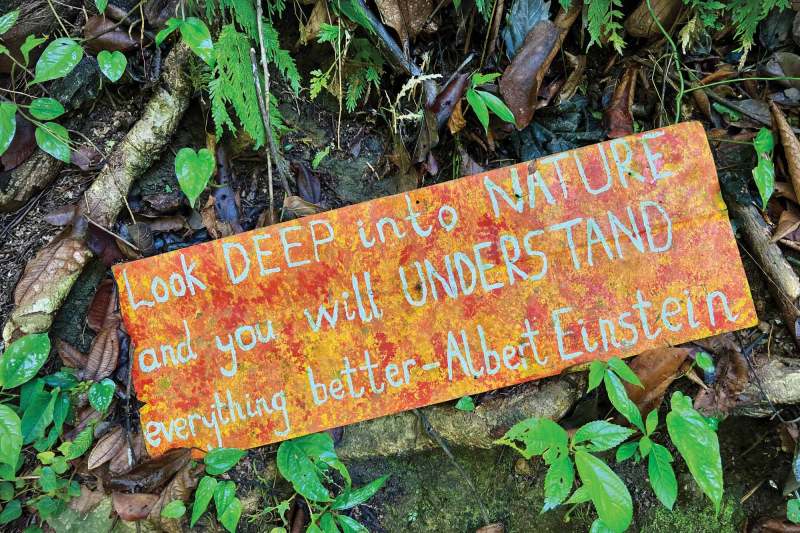 Look DEEP into NATURE
and you will UNDERSTAND
everything better-Albert Einstein